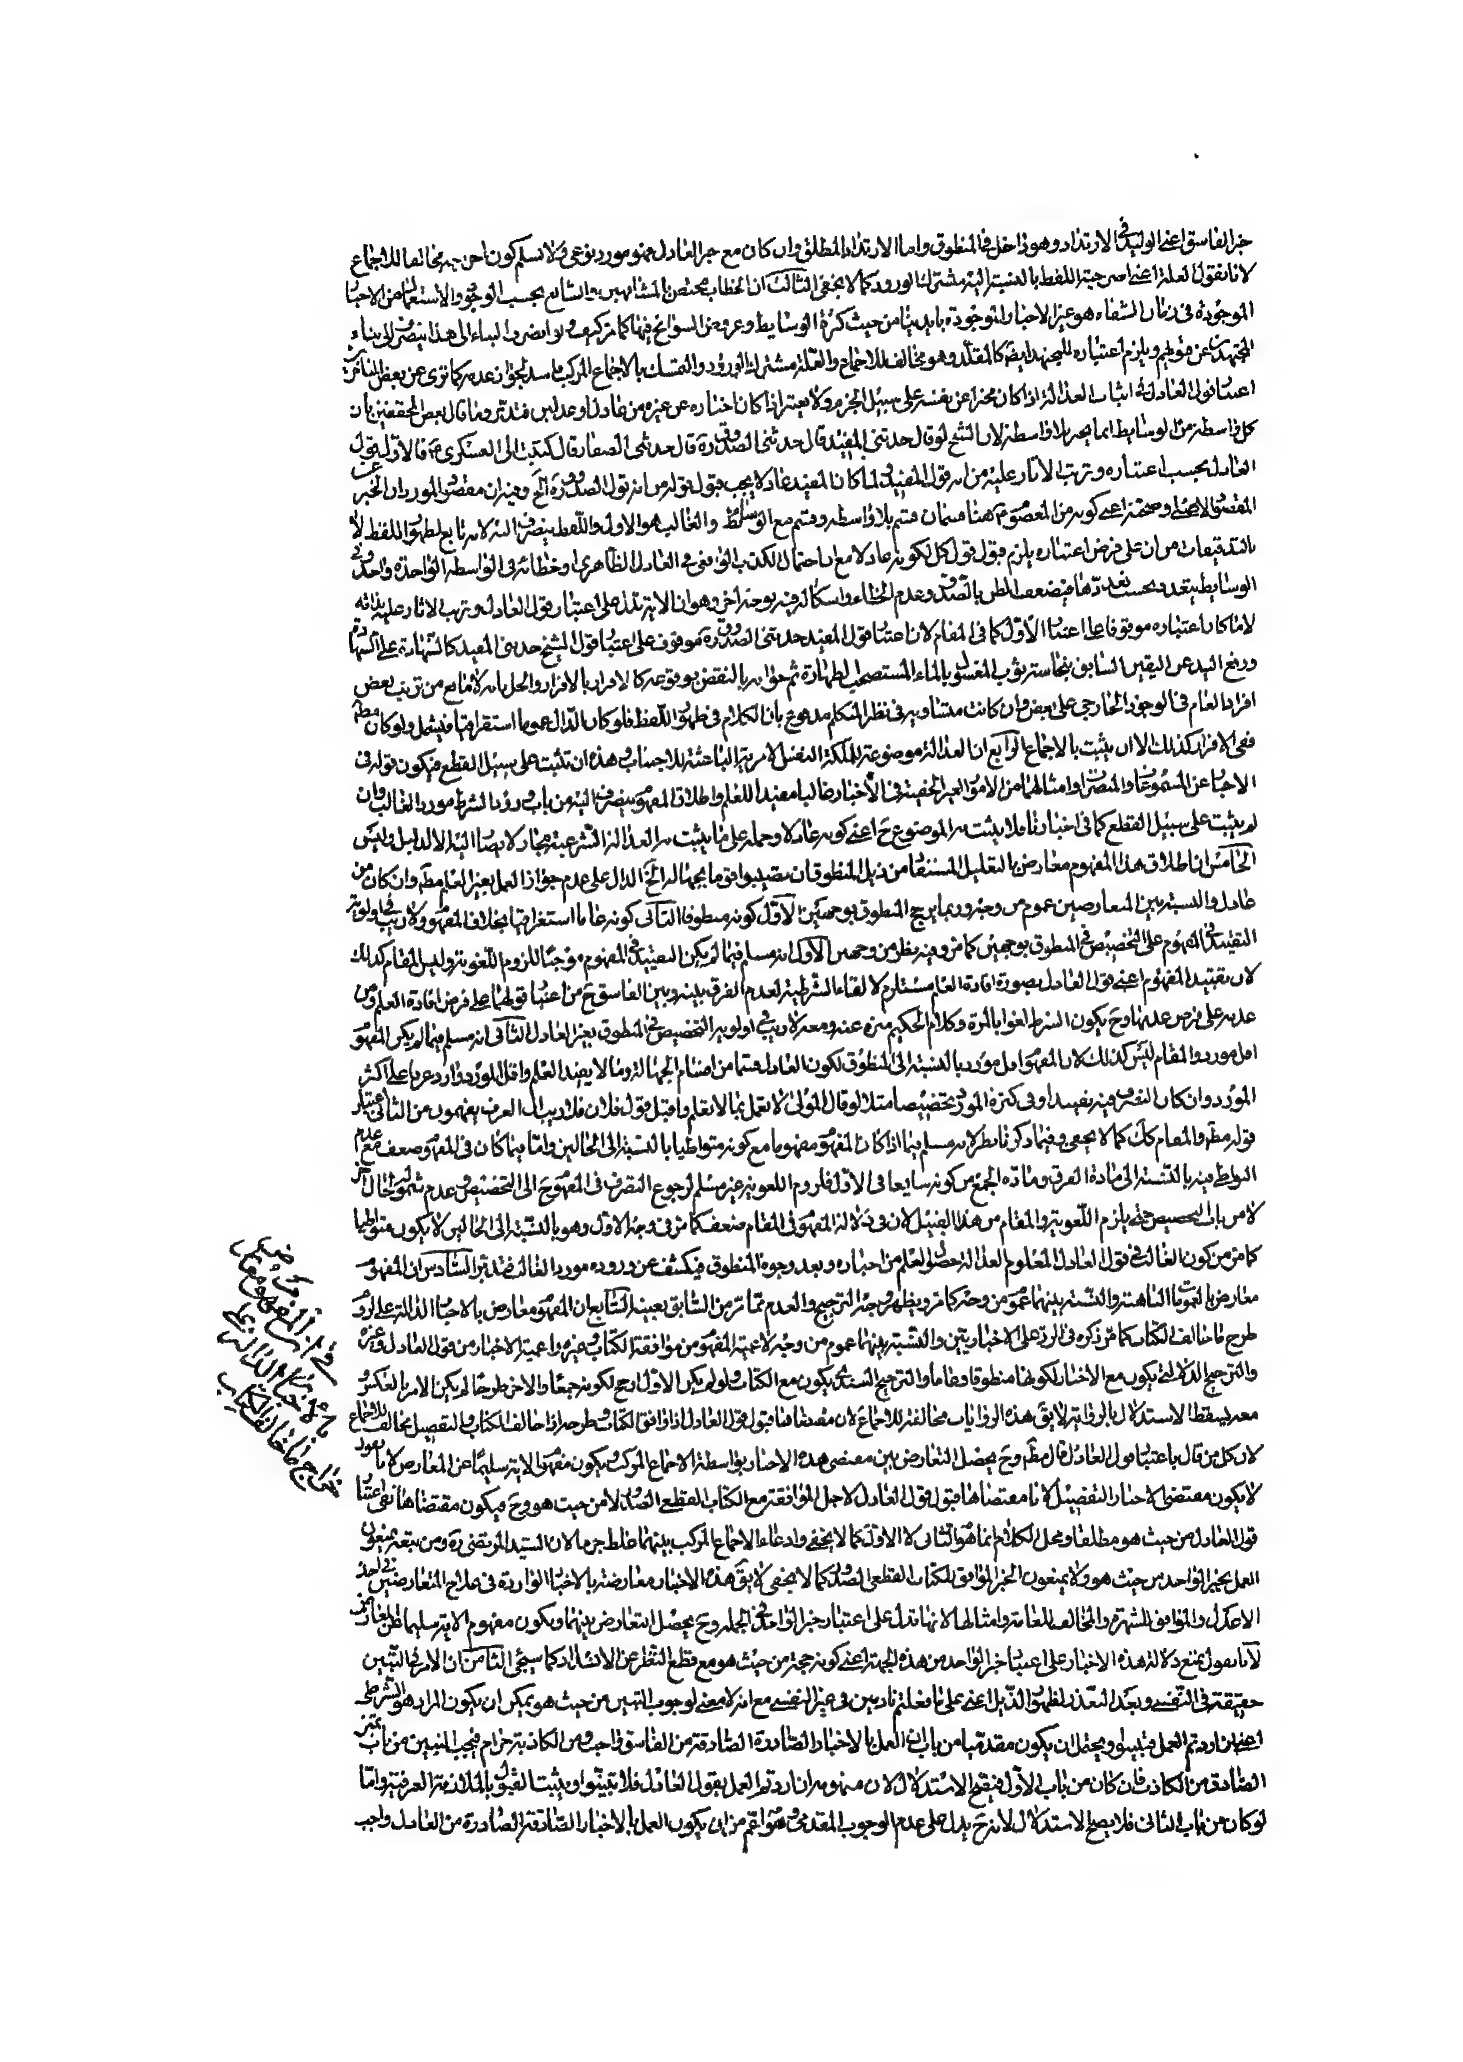 خبر الفاسق اعنى الوليد فى الارتداد وهو داخل فى المنطوق واما الارتداد المطلق وان كان مع خبر العادل فهو مورد نوعى فلا نسلم كون اخراجه مخالفا للاجماع
لانا نقول العلة اعنى صرحية اللفظ بالنسبة اليه مشترك الورود كما لا يخفى الثالث ان الخطاب مختص بالمشافهين والشايع بحسب الوجود والاستعمال من الاخبار
الموجودة فى زمان الشفاه هو غير الاخبار الموجودة بايدينا من حيث كثرة الوسايط وعروض السوانح فيها كما مر كيف ولو انصرف النباء الى هذا ينصرف الى نباء
المجتهد عن قولهم ويلزم اعتباره للمجتهد ايضا كالمقلد وهو مخالف للاجماع والعلة مشترك الورود والتمسك بالاجماع المركب فاسد لجواز عدمه كما ترى عن بعض المتاخرين
اعتبار قول العادل فى اثبات العدالة اذا كان مخبرا عن نفسه على سبيل الجزم ولا يعتبر اذا كان اخباره عن غيره من عادل او عدلين فتدبر وما قال بعض المحققين بان
كل واسطة من الوسايط انما يخبر بلا واسطة لان الشيخ لو قال حدثنى المفيد قال حدثنى الصدوق ره قال حدثنى الصفار قال كتبت الى العسكرى ع فالاول يقول
العادل يجب اعتباره وترتب الاثار عليه من انه قول المفيد ولما كان المفيد عادلا يجب قبول قوله من انه قول الصدوق ره الخ وفيه ان مقصود المورد ان الخبر عن
المقصود الاصلى وصحته اعنى كونه من المعصوم ع هنا قسمان قسم بلا واسطة وقسم مع الوسايط والغالب هو الاول واللفظ ينصرف اليه لانه تابع لظهور اللفظ لا
بالتدقيقات من ان على فرض اعتباره يلزم قبول قول كل لكونه عادلا مع ان احتمال الكذب الواقعى فى العادل الظاهرى او خطائه فى الواسطة الواحدة واحد وفى
الوسايط يتعدد بحسب تعددها فيضعف الظن بالصدق وعدم الخطاء واشكال فيه بوجه اخر وهو ان الاية تدل على اعتبار قول العادل وترتب الاثار عليه بذاته
لا ما كان اعتباره موقوفا على اعتبار الاول كما فى المقام لان اعتبار قول المفيد حدثنى الصدوق ره موقوف على اعتبار قول الشيخ حدثنى المفيد كالشهادة على الشهادة
ورفع اليد عن اليقين السابق بنجاسة ثوب المغسول بالماء المستصحب الطهارة ثم جوابه بالنقض بوقوعه كالاقرار بالاقرار والحل بانه لا مانع من ترتب بعض
افراد العام فى الوجود الخارجى على بعض وان كانت متساوية فى نظر المتكلم مدفوع بان الكلام فى ظهور اللفظ فلو كان الدال عموما استغراقيا فيشمل ولو كان مط
ففى الافراد كذلك الا ان يثبت بالاجماع الرابع ان العدالة موضوعة للملكة النفس الامرية الباعثة للاجتناب وهذه ان تثبت على سبيل القطع فيكون قوله فى
الاخبار عن المسموعات والمبصرات وامثالهما من الامور الغير الخفية فى الاخبار غالبا مفيدا للعلم واطلاق المفهوم ينصرف اليه من باب ورود الشرط مورد الغالب وان
لم يثبت على سبيل القطع كما فى اخبارنا فلا يثبت به الموضوع ح اعنى كونه عادلا وحمله على ما يثبت به العدالة الشرعية مجاز لا يصار اليه الا لدليل وليس
الخامس ان اطلاق هذا المفهوم معارض بالتعليل المستفاد من ذيل المنطوق ان تصيبوا قوما بجهالة الخ الدال على عدم جواز العمل بغير العلم مط وان كان من
عادل والنسبة بين المتعارضين عموم من وجه وربما يرجح المنطوق بوجهين الاول كونه منطوقا الثانى كونه عاما استغراقيا بخلاف المفهوم ولا ريب فى اولوية
التقييد فى المفهوم على التخصيص فى المنطوق بوجهين كما مر وفيه نظر من وجهين الاول انه مسلم فيما لم يكن التقييد فى المفهوم موجبا للزوم اللغوية وليس المقام كذلك
لان تقييد المفهوم اعنى قول العادل بصورة افادة العلم مستلزم لالقاء الشرطية لعدم الفرق بينه وبين الفاسق ح من اعتبار قولهما على فرض افادة العلم ومن
عدمه على فرض عدمها وح يكون الشرط لغوا بالمرة وكلام الحكيم منزه عنه ومعه لا ريب فى اولوية التخصيص فى المنطوق بغير العادل الثانى انه مسلم فيما لم يكن المفهوم
اقل موردا والمقام ليس كذلك لان المفهوم اقل موردا بالنسبة الى المنطوق لكون العادل قسما من اقسام الجهالة وما لا يفيد العلم واقل الموردوارد عرفا على اكثر
المورد وان كان التصرف فيه تقييدا وفى كثرة المورد تخصيصا مثلا لو قال المولى لا تعمل بما لا تعلم واقبل قول فلان فلا ريب ان العرف يفهمون من الثانى اعتبار
قوله مط والمقام كك كما لا يخفى وفيما ذكرنا نظر لانه مسلم فيما اذا كان المفهوم مفهوما مع كونه متواطيا بالنسبة الى الحالين واما فيما كان فى المفهوم ضعف مع عدم
التواطى فيه بالنسبة الى مادة الفرق ومادة الجمع من كونه شايعا فى الاول فلزوم اللغوية غير مسلم لرجوع التصرف فى المفهوم ح الى التخصيص وعدم شموله لحال اخر
لا من باب التخصيص حتى يلزم اللغوية والمقام من هذا القبيل لان فى دلالة المفهوم فى المقام ضعف كما مر فى وجه الاول وهو بالنسبة الى الحالين لا يكون متواطيا
كما مر من كون الغالب فى قول العادل المعلوم العدالة حصول العلم من اخباره وبعد وجوه المنطوق فيكشف عن وروده مورد الغالب فتدبر السادس ان المفهوم
معارض بالعمومات الناهية والنسبة بينهما عموم من وجه كما مر ويظهر وجه الترجيح والعدم مما مر من السابق بعينه السابع ان المفهوم معارض بالاخبار الدالة على لزوم
طرح ما خالف الكتاب كما مر ذكره فى الرد على الاخباريين والنسبة بينهما عموم من وجه لاعمية المفهوم من موافقة الكتاب وغيره واعمية الاخبار من قول العادل وغيره
والترجيح الدلالتى يكون مع الاخبار لكونها منطوقا وعاما والترجيح السندى يكون مع الكتاب ولو لم يكن الاول ارجح لكونه جمعا والاخر طرحا لم يكن الامر بالعكس و
معه يسقط الاستدلال بالاية لا يق هذه الروايات مخالفة للاجماع لان مقتضاها قبول قول العادل اذا وافق الكتاب وطرحه اذا خالف الكتاب والتفصيل مخالف للاجماع
لان كل من قال باعتبار قول العادل قال مط وح يحصل التعارض بين مقتضى هذه الاخبار بواسطة الاجماع المركب ويكون مفهوم الاية سليما عن المعارض لانا نقول
لا يكون مقتضى الاخبار التفصيل لان مقتضاها قبول قول العادل لاجل الموافقة مع الكتاب القطعى الصدور لا من حيث هو وح فيكون مقتضاها نفى اعتبار
قول العادل من حيث هو مطلقا ومحل الكلام انما هو الثانى لا الاول كما لا يخفى وادعاء الاجماع المركب بينهما غلط جزما لان السيد المرتضى ره ومن تبعه يمنعون
العمل بخبر الواحد من حيث هو ولا يمنعون الخبر الموافق للكتاب القطعى الصدور كما لا يخفى لا يق هذه الاخبار معارضة بالاخبار الواردة فى علاج المتعارضين فى اخذ
الاعدل والموافق الشهرة والمخالف للعامة وامثالها لانها تدل على اعتبار خبر الواحد فى الجملة وح يحصل التعارض بينهما ويكون مفهوم الاية سليما عن المعارض
لانا نقول نمنع دلالة هذه الاخبار على اعتبار خبر الواحد من هذه الجهة اعنى كونه حجة من حيث هو مع قطع النظر عن الانسداد كما سيجئ الثامن ان الامر فى التبين
حقيقة فى النفسى وبعد التعذر لظهور الذيل اعنى على ما فعلتم نادمين فى غير النفسى مع انه لا معنى لوجوب التبين من حيث هو يمكن ان يكون المراد هو الشرطى
اعنى ان اردتم العمل فتبينوا ويحتمل ان يكون مقدميا من باب ان العمل بالاخبار الصادرة الصادقة من الفاسق واجب ومن الكاذبة حرام فيجب التبين من باب تميز
الصادق من الكاذب فان كان من باب الاول فيصح الاستدلال لان مفهومه ان اردتم العمل بقول العادل فلا تبينوا ويثبت القبول بالملازمة العرفية واما
لو كان من باب الثانى فلا يصح الاستدلال لانه ح يدل على عدم الوجوب المقدمى وهو اعم من ان يكون العمل بالاخبار الصادقة الصادرة من العادل واجب